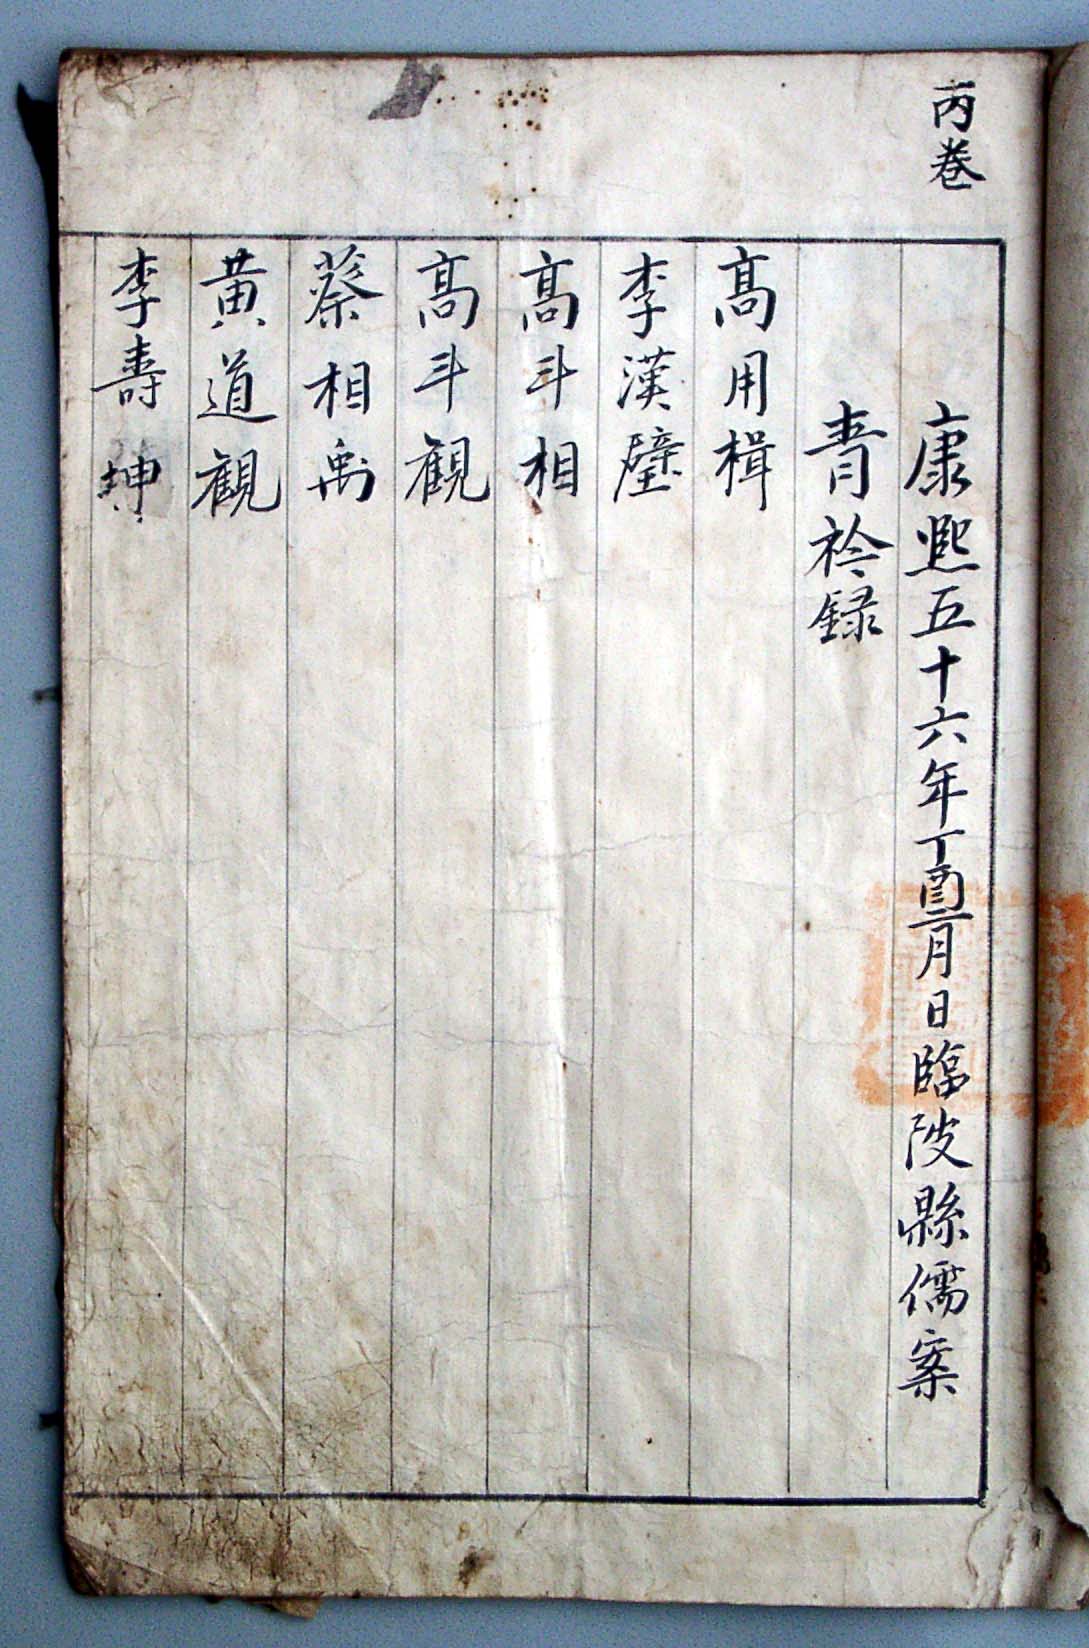 丙卷
康熙五十六年丁酉二月日臨陂縣儒案
青衿録
高用楫
李漢壁
高斗相
高斗観
蔡相禹
黄道観
李壽坤